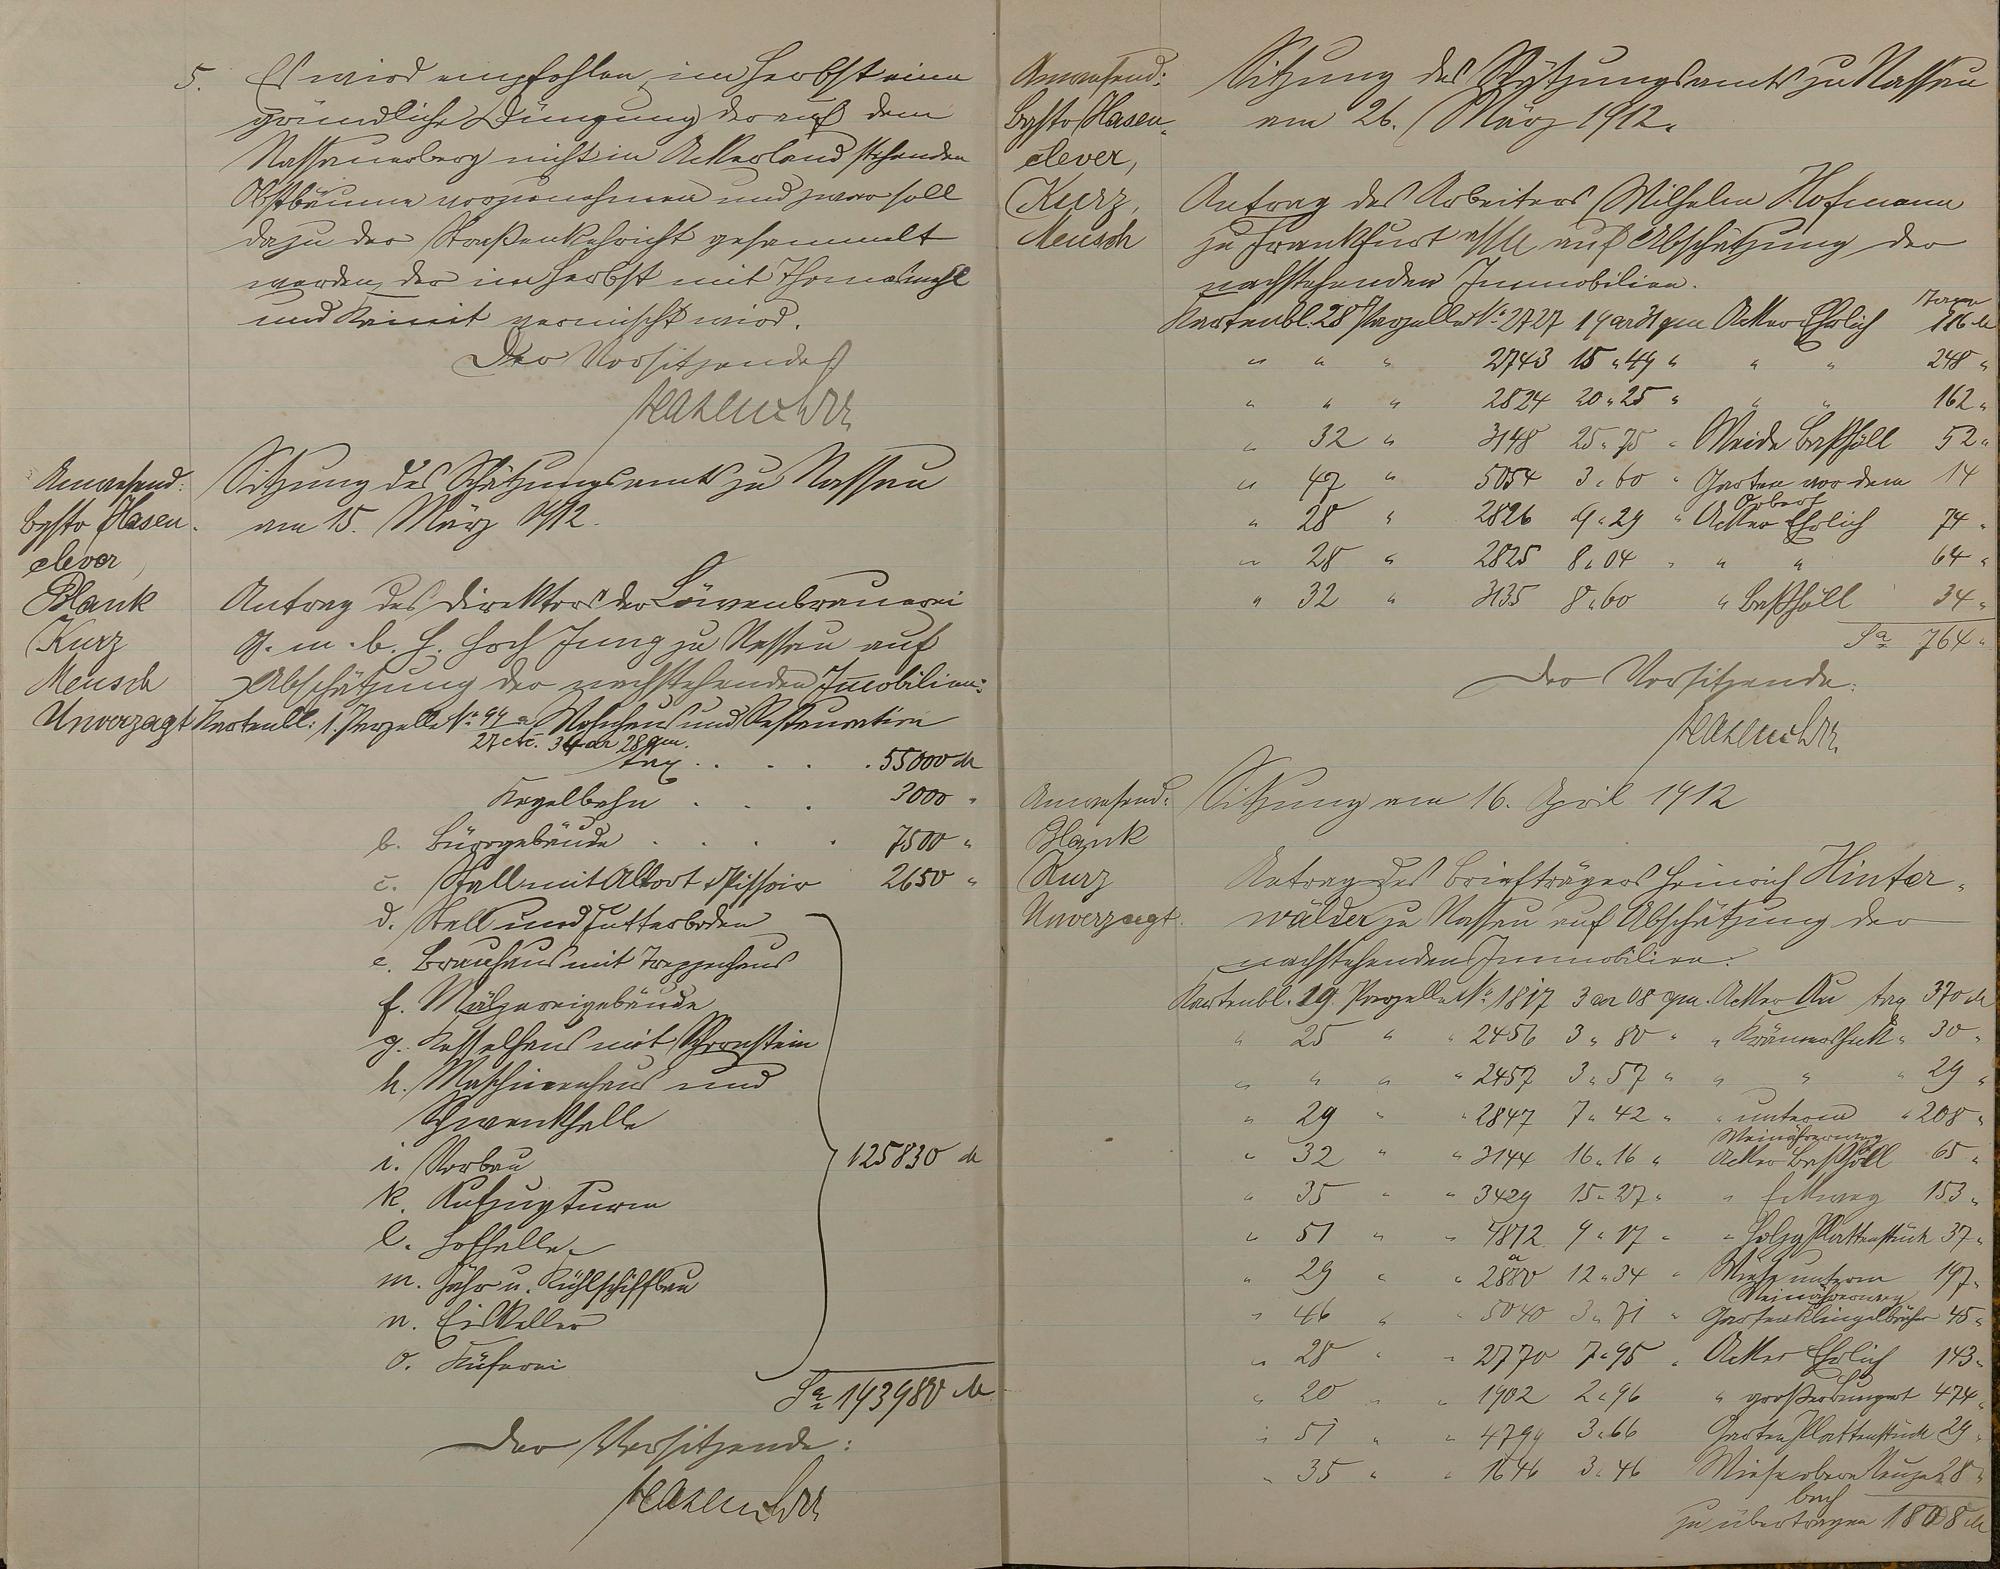 5. Es wird empfohlen, im Herbst eine
gründliche Düngung der auf dem
Nassauerberg nicht in Ackerland stehenden
Obstbäume vorzunehmen und zwar soll
dazu der Straßenkehricht gesammelt
werden, der im Herbst mit Thomasmehl
und Kainit vermischt wird.
Der Vorsitzende
Hasenclever
Anwesend:
Bgstr Hasen-
clever,
Blank
Kurz
Meusch
Unverzagt
Sitzung des Schätzungsamts zu Nassau
am 15. März 1912.
Antrag des Direktors der Löwenbrauerei
G. m. b. H. Hoch Jung zu Nassau auf
Abschätzung der nachstehenden Immobilien:
Kartenbl: 1. Parzelle No 94 a Wohnhaus und Restauration
27 etc. 34 ar 28 qm.
Tax . . . . 55000 M
Kegelbahn . . . 3000 "
b. Bürogebäude . . . . 7500 "
c. Stall mit Abort & Pissoir 2650 "
d. Stall und Futterboden
e. Brauhaus mit Treppenhaus
f. Mälzereigebäude
g. Kesselhaus mit Schornstein
h. Maschinenhaus und
Schwenkhalle
i. Vorbau 125830 M
k. Aufzugturm
l. Hofhalle
m. Gähr u. Kühlschiffbau
n. Eiskeller
o. Küferei
Sa 193980 M
Der Vorsitzende:
Hasenclever
Anwesend:
Bgstr Hasen-
clever,
Kurz,
Meusch
Sitzung des Schätzungsamts zu Nassau
am 26. März 1912.
Antrag des Arbeiters Wilhelm Hofmann
zu Frankfurt auf Abschätzung der
nachstehenden Immobilien.
Kartenbl. 28 Parzelle No 2727 19 ar 31 qm Acker Ehrlich 116 M
" " " 2743 15 " 49 " " " 248 "
" " " 2824 20 " 25 " " " 162 "
" 32 " 3148 25 " 75 " Weide Baßhöll 52 "
" 47 " 5054 3 " 60 " Garten vor dem 14
" 28 " 2826 9 " 29 " Acker Ehrlich 74 "
" 28 " 2825 8 " 04 " " " 64 "
" 32 " 3135 8 " 60 " Baßhöll 34 "
Sa 764 "
Der Vorsitzende:
Hasenclever
Anwesend:
Blank
Kurz
Unverzagt
Sitzung am 16. April 1912
Antrag des Briefträgers Heinrich Hinter-
wälder zu Nassau auf Abschätzung der
nachstehenden Immobilien:
Kartenbl. 19. Parzelle No 1817 3 ar 08 qm. Acker Au Tax 370 M
" 25 " " 2456 3 " 80 " " " 30 "
" " " " 2457 3 " 57 " " " " 29 "
" 29 " " 2847 7 " 42 " " unterm " 208 "
Weinährerweg
" 32 " " 3144 16 " 16 " Acker Baßhöll 65 "
" 35 " " 3429 15 " 27 " " 153 "
" 51 " " 4812 9 " 17 " " Plattenstück 37 "
" 29 " " 2880 12 " 34 " Wiese unterm 197 "
Weinährerweg
" 46 " " 5040 3 " 71 " Garten 45 "
" 28 " " 2770 7 " 95 " Acker Ehrlich 143 "
" 20 " " 1902 2 " 96 " 474 "
" 51 " " 4799 3 " 66 Garten Plattenstück 29 "
" 35 " " 1646 3 " 46 Wiese obere 28 "
bach
zu übertragen 1808 M